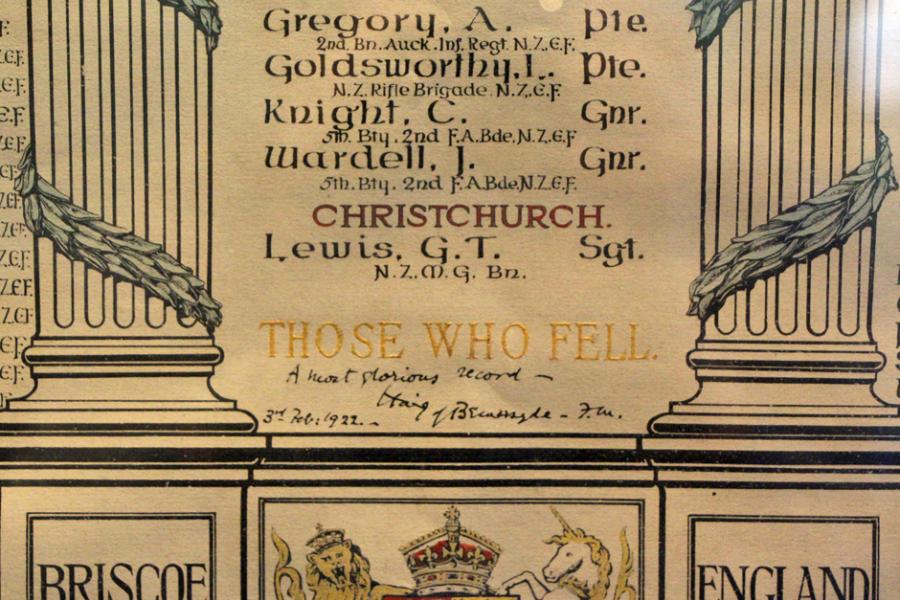 Gregory, A. Pte.
2nd. Bn. Auck. Inf. Regt. N.Z.E.F.
Goldsworthy, L. Pte.
N.Z. Rifle Brigade. N.Z.E.F
Knight, C. Gnr.
5th. Bty. 2nd F.A.Bde. N.Z.E.F
Wardell, J. Gnr.
5th. Bty. 2nd F.A.Bde. N.Z.E.F.
CHRISTCHURCH.
Lewis, G.T. Sgt.
N.Z.M.G. Bn.
THOSE WHO FELL.
A most glorious record –
Haig of Bemersyde – F.M.
3rd Feb: 1922. –
BRISCOE
ENGLAND